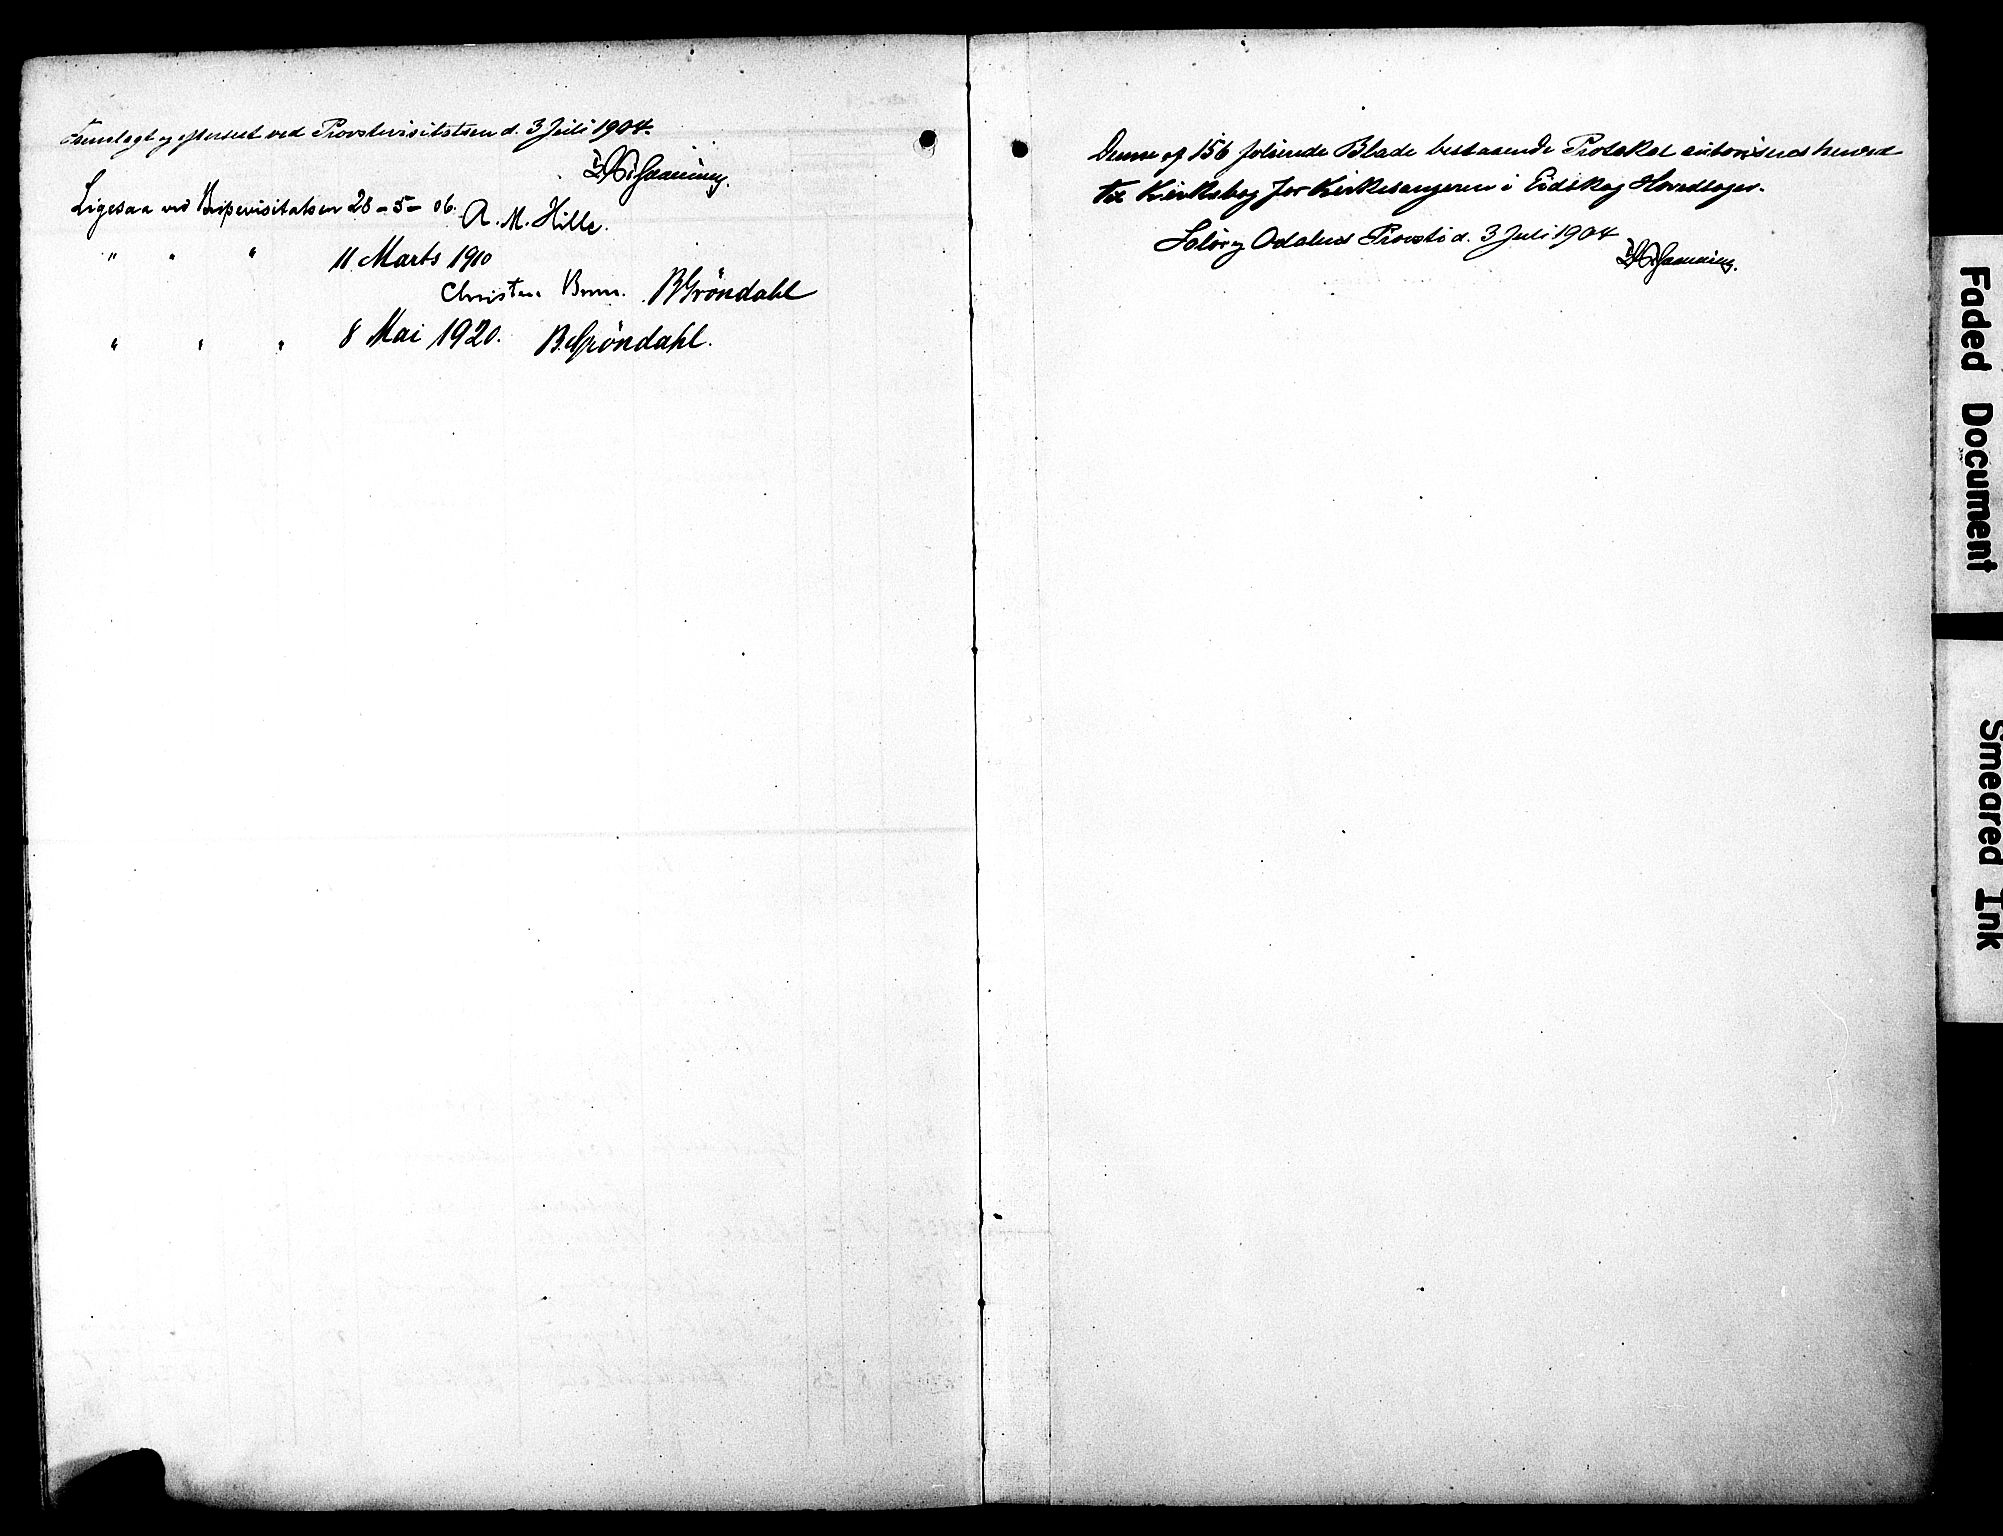 Fremlagt og efterseet ved Provstevisitatsen d. 3 Juli 1904.
Ligesaa ved Bispevisitatsen 28-5-06. A. M. Hille.
" " " 11 Marts 1910
Christen Brun. B Gröndahl
" " " 8 Mai 1920. B. Gröndahl.
Denne af 156 folierede Blade bestaaende Protokol autoriseres herved
til Kirkebog for Kirkesangeren i Eidskog Hovedsogn.
Solør og Odalens Provsti d. 3 Juli 1904
Faded Document
Smeared Ink